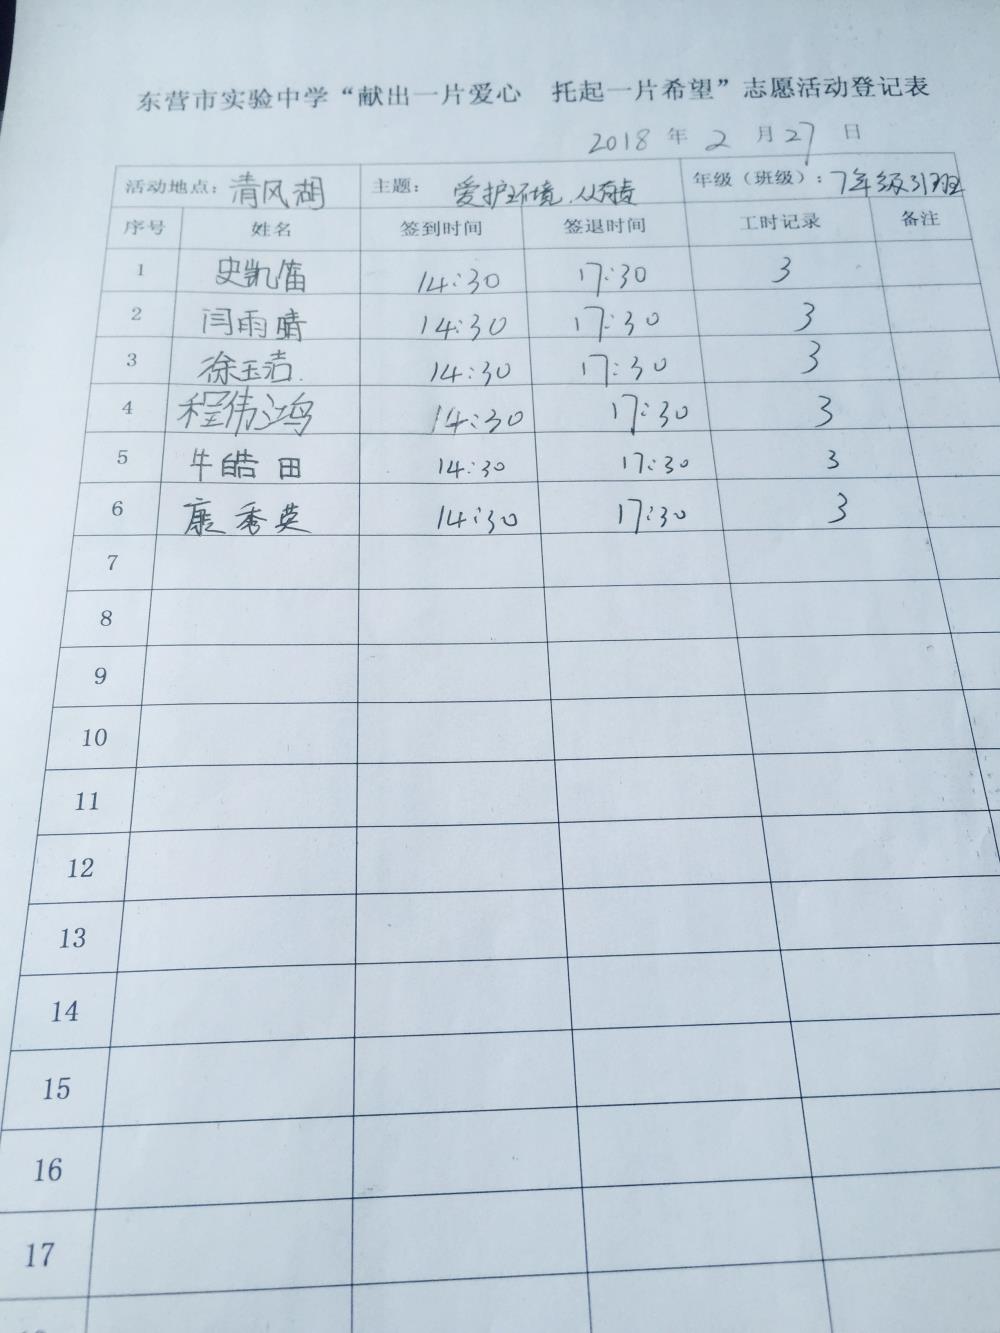 东营市实验中学“献出一片爱心 托起一片希望”志愿活动登记表
2018 年 2 月 27 日
活动地点：清风湖 主题： 爱护环境，从 年级（班级）：7年级31班
序号 姓名 签到时间 签退时间 工时记录 备注
1 史凯 14:30 17:30 3
2 闫雨晴 14:30 17:30 3
3 徐玉洁. 14:30 17:30 3
4 程伟鸿 14:30 17:30 3
5 牛皓田 14:30 17:30 3
6 康秀英 14:30 17:30 3
7
8
9
10
11
12
13
14
15
16
17